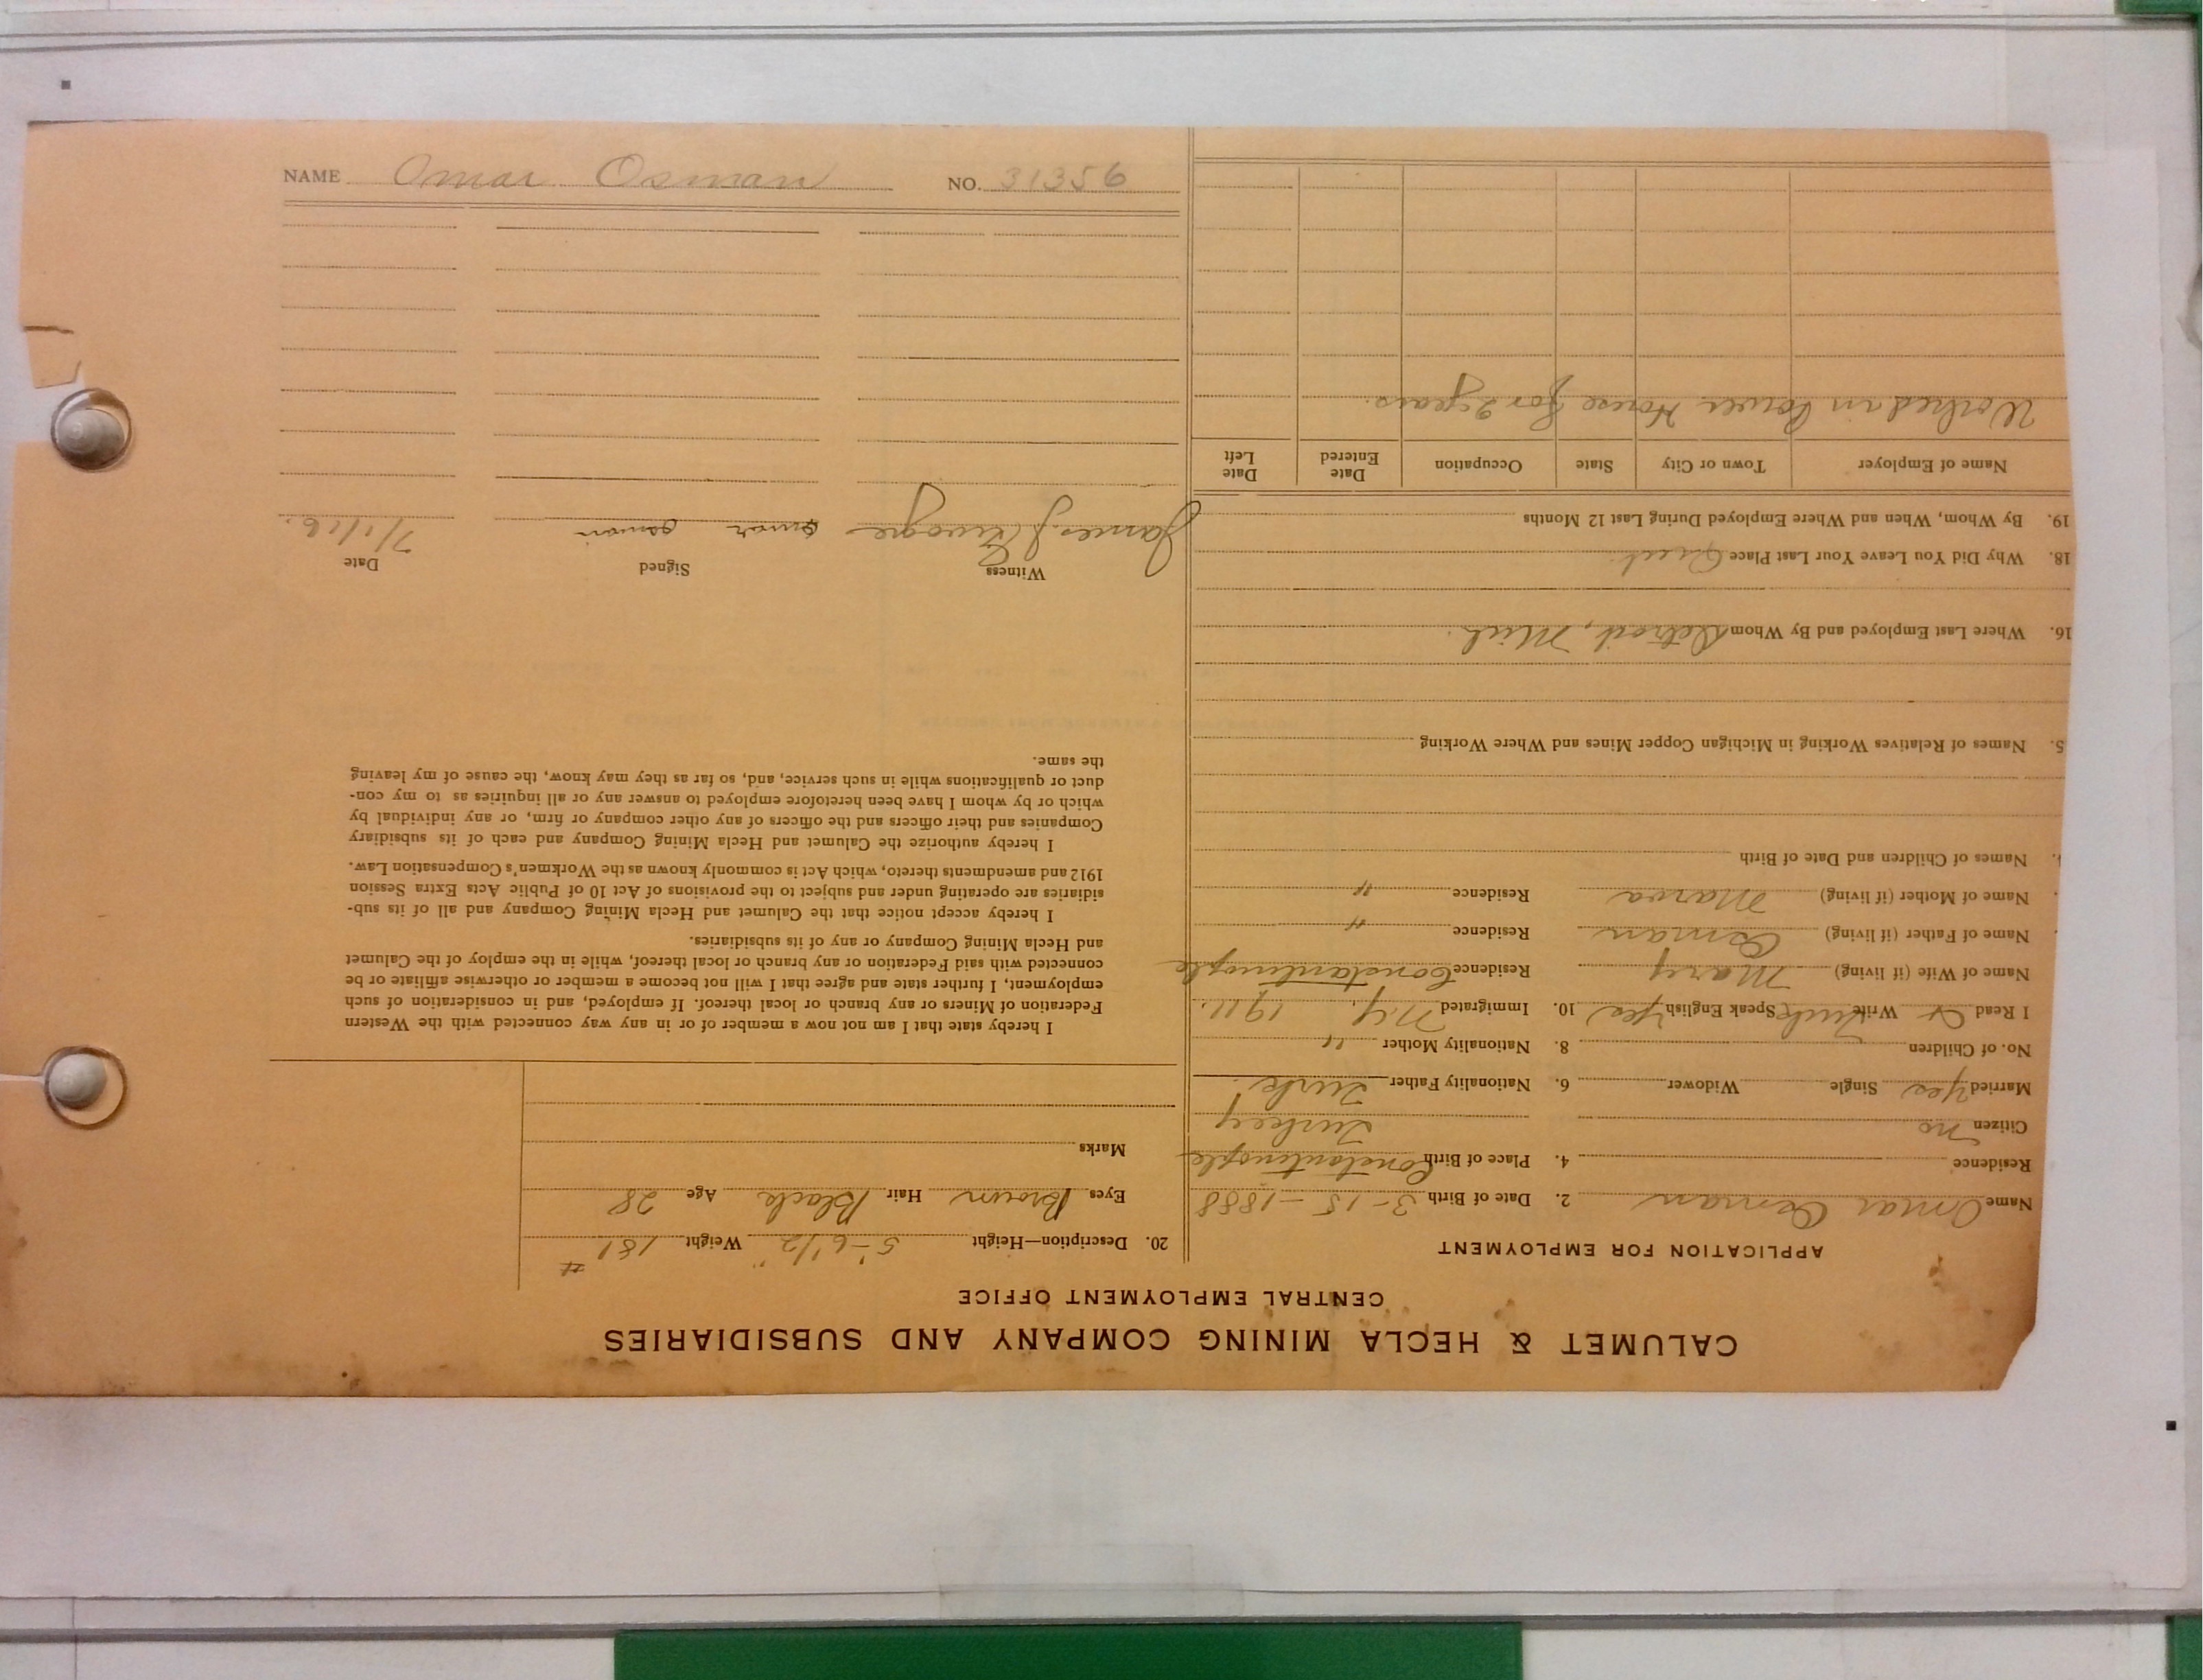 CALUMET & HECLA MINING COMPANY AND SUBSIDIARIES
CENTRAL EMPLOYMENT OFFICE
APPLICATION FOR EMPLOYMENT
Name Omar Osman 2. Date of Birth 3-15-1888
Residence 4. Place of Birth Constantinople
Citizen no Turkey
Married Yes Single Widower 6. Nationality Father Turk.
No. of Children 8. Nationality Mother "
I Read & Write Turk Speak English Yes 10. Immigrated N.Y. 1911.
Name of Wife (if living) Mary Residence Constantinople
Name of Father (if living) Osman Residence "
Name of Mother (if living) Residence "
Names of Children and Date of Birth
5. Names of Relatives Working in Michigan Copper Mines and Where Working
16. Where Last Employed and By Whom Detroit, Mich.
18. Why Did You Leave Your Last Place Quit
19. By Whom, When and Where Employed During Last 12 Months
Name of Employer Town or City State Occupation Date Entered Date Left
Worked in Power House for 2 years.
20. Description—Height 5'-6 1/2" Weight 181 #
Eyes Brown Hair Black Age 28
Marks
I hereby state that I am not now a member of or in any way connected with the Western
Federation of Miners or any branch or local thereof. If employed, and in consideration of such
employment, I further state and agree that I will not become a member or otherwise affiliate or be
connected with said Federation or any branch or local thereof, while in the employ of the Calumet
and Hecla Mining Company or any of its subsidiaries.
I hereby accept notice that the Calumet and Hecla Mining Company and all of its sub-
sidiaries are operating under and subject to the provisions of Act 10 of Public Acts Extra Session
1912 and amendments thereto, which Act is commonly known as the Workmen's Compensation Law.
I hereby authorize the Calumet and Hecla Mining Company and each of its subsidiary
Companies and their officers and the officers of any other company or firm, or any individual by
which or by whom I have been heretofore employed to answer any or all inquiries as to my con-
duct or qualifications while in such service, and, so far as they may know, the cause of my leaving
the same.
Witness Signed Date
James J. Omar Osman 7/1/16.
NAME Omar Osman NO. 31356